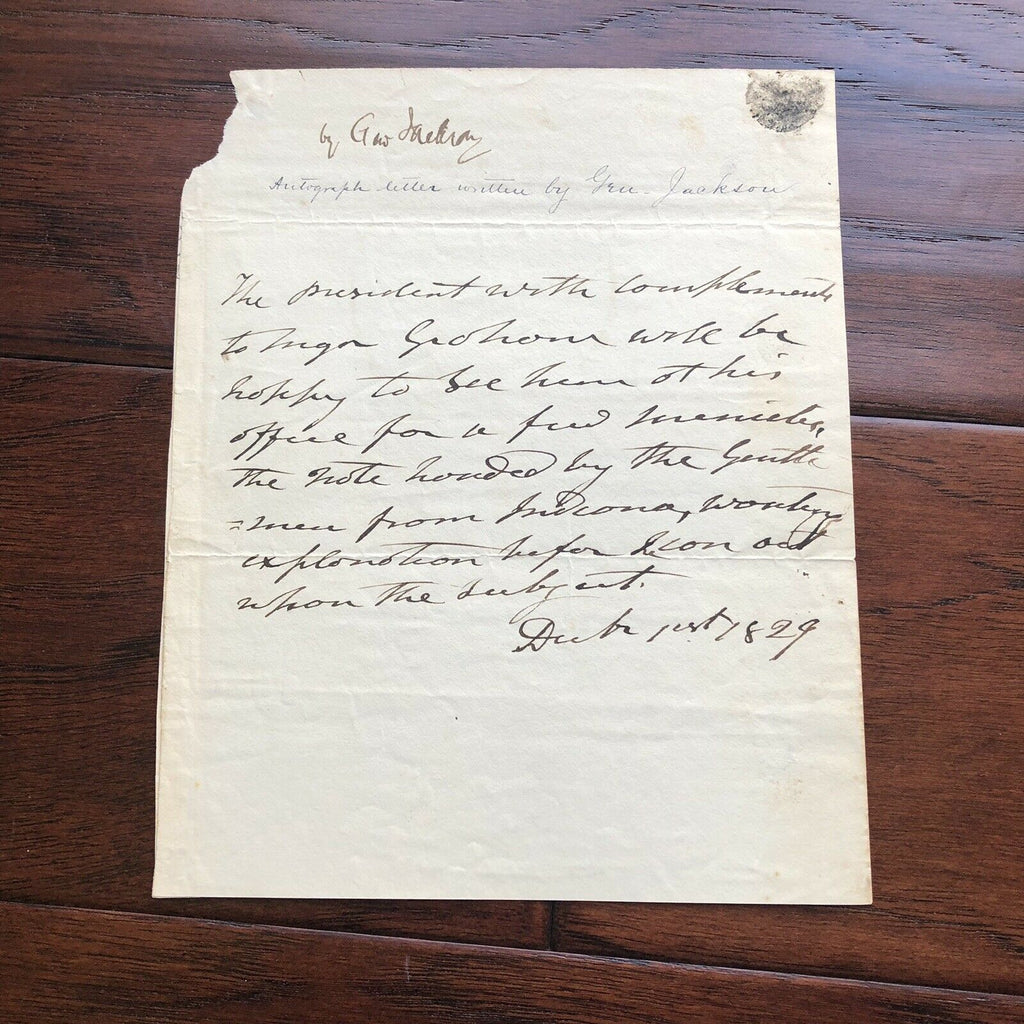 by Gen Jackson
Autograph letter written by Gen. Jackson
The president with complements
to Majr Graham will be
happy to see him at his
office for a few minutes,
the note handed by the Gentle
=men from Indiana, wanting
explanation before I can act
upon the subject.
Decbr 1rst 1829